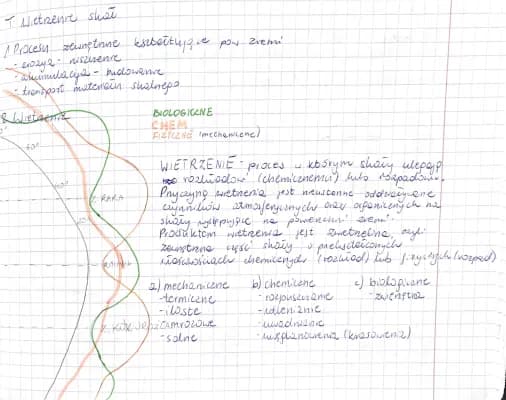 T. Wietrzenie skał
1. Procesy zewnętrzne kształtujące pow. ziemi
- erozja - niszczenie
- akumulacja - budowanie
- transport materiału skalnego
2. Wietrzenie
BIOLOGICZNE
CHEM
FIZYCZNE (mechaniczne)
WIETRZENIE - proces w którym skały ulegają
rozkładowi (chemicznemu) lub rozpadowi.
Przyczyną wietrzenia jest oddziaływanie
czynników atmosferycznych oraz organicznych na
skały występujące na powierzchni ziemi.
Produktem wietrzenia jest zwietrzelina, czyli
zewnętrzna część skały o
właściwościach chemicznych (rozkład) lub fizycznych (rozpad)
Z. RAKA
a) mechaniczne b) chemiczne c) biologiczne
- termiczne - rozpuszczanie
- ilaste - utlenianie
- mrozowe - uwadnianie
- solne (krasowienia)